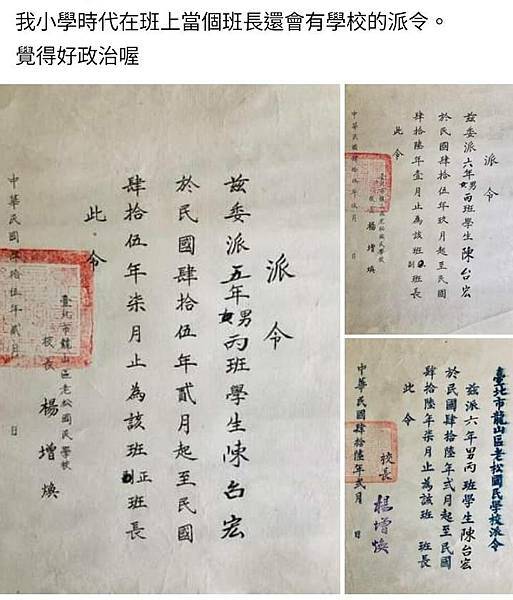 我小學時代在班上當個班長還會有學校的派令。
覺得好政治喔
派令
茲委派五年男女丙班學生陳台宏
於民國肆拾伍年貳月起至民國
肆拾伍年柒月止為該班正副班長
此令
臺北市龍山區老松國民學校
校長 楊增煥
中華民國拾伍年貳月 日
派令
茲委派六年男女丙班學生陳台宏
於民國肆拾伍年玖月起至民國
肆拾陸年壹月止為該班副班長
此令
臺北市龍山區老松國民學校
校長 楊增煥
中華民國拾伍年月 日
臺北市龍山區老松國民學校派令
茲派六年男丙班學生陳台宏
於民國肆拾陸年弍月起至民國
肆拾陸年柒月止為該班 班長
此令
校長 楊增煥
中華民國肆拾陸年弍月 日